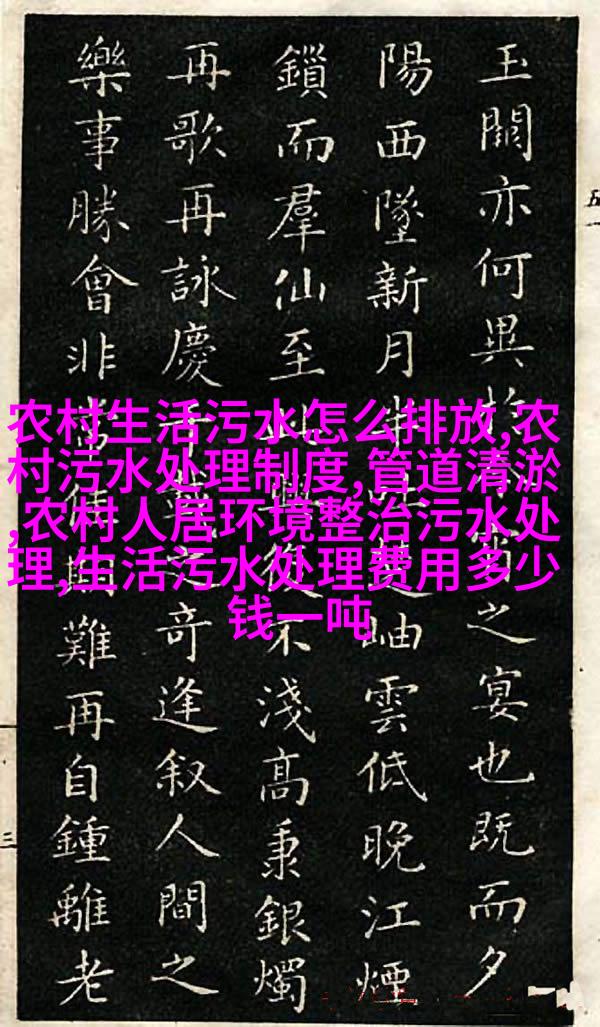 玉闕亦何異於雪之宴也既而夕
陽西墜新月半吐楚岫雲低晚江煙
鎖而羣仙至此興復不淺高秉銀燭
再歌再詠慶千載之奇逢叙人間之
樂事勝會非常佳期難再自鍾離老
五一
三
农村生活污水怎么排放,农
村污水处理制度,管道清淤
,农村人居环境整治污水处
理,生活污水处理费用多少
钱一吨